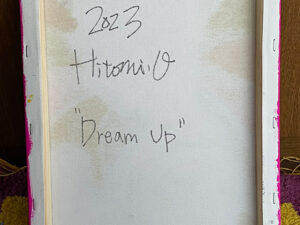 2023
Hitomi.O
"Dream up"